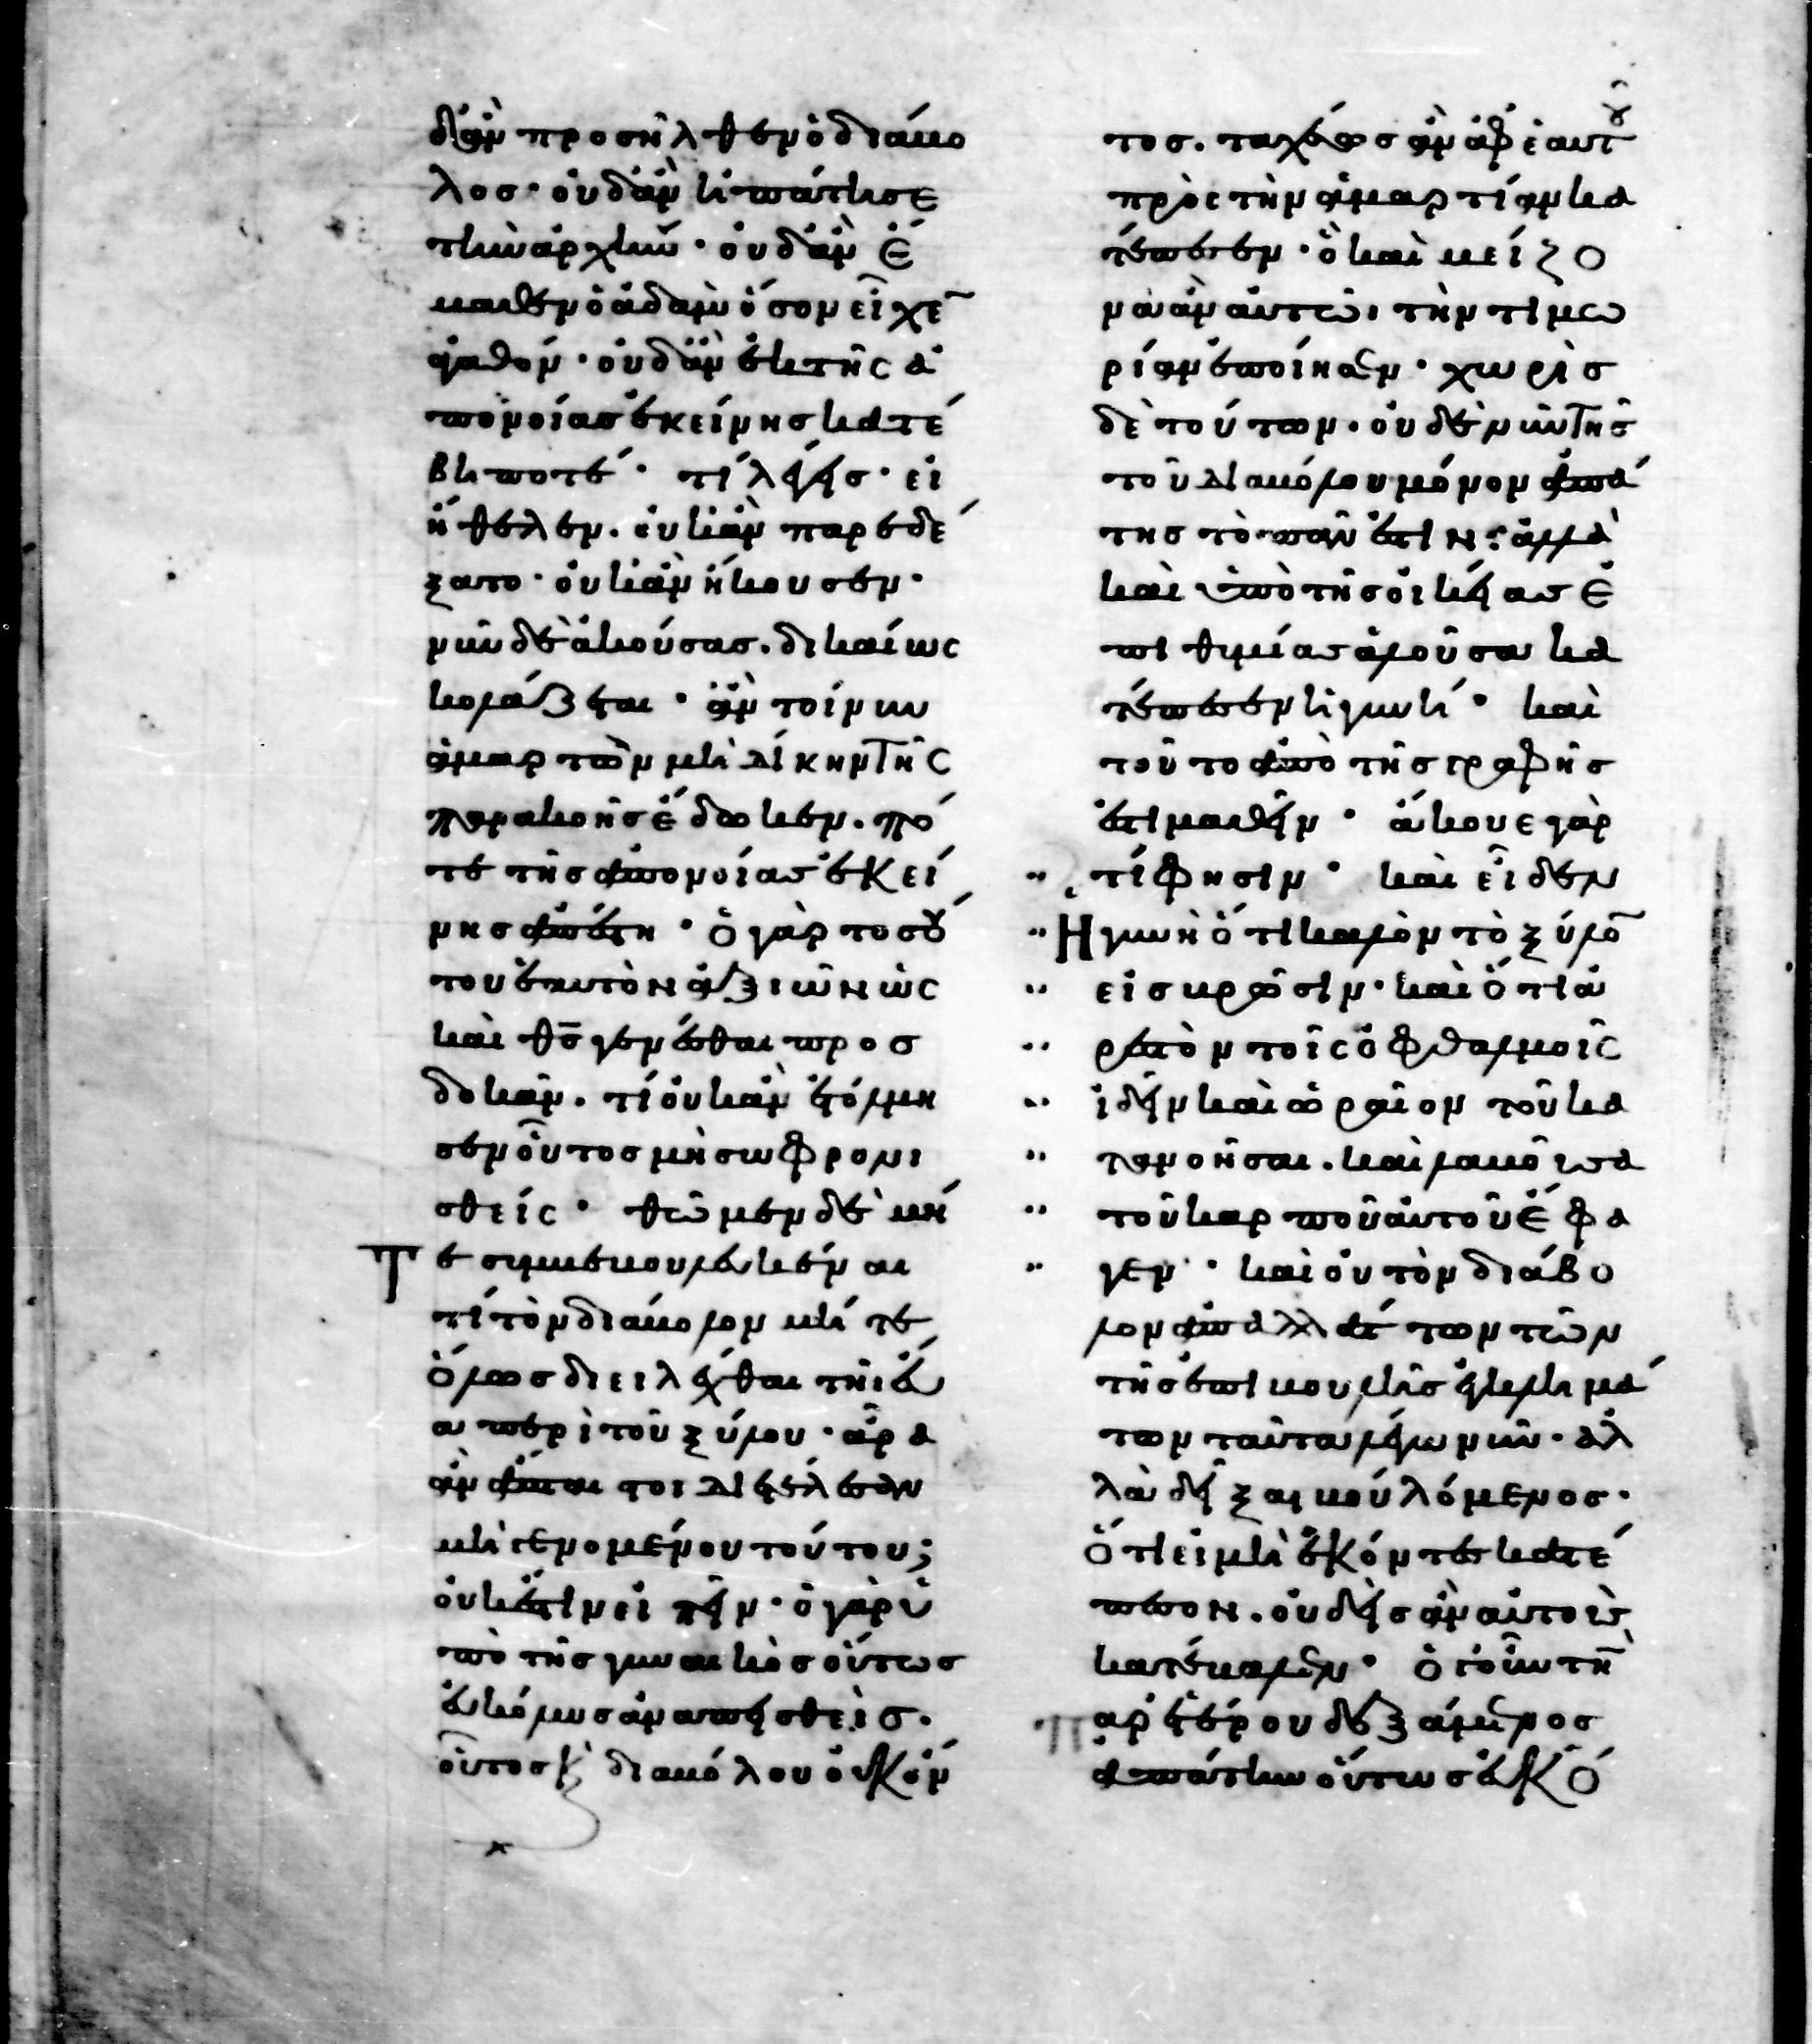 δ' ἂν προσῆλθεν ὁ διάβο
λος· οὐδ' ἂν ἠπάτησε
τὴν ἀρχήν· οὐδ' ἂν ἔ
μαθεν ὁ ἀδὰμ ὅσον εἶχε
ἀγαθόν· οὐδ' ἂν ἐκ τῆς ἀ
πονοίας ἐκείνης κατέ
βη ποτέ· τί λέγεις· εἰ
ἤθελεν. οὐκ ἂν παρεδέ
ξατο· οὐκ ἂν ἤκουσεν·
νῦν δὲ ἀκούσας. δικαίως
κολάζεται· ἂν τοίνυν
ἁμαρτὼν μὴ δίκην τῆς
παρακοῆς ἔδωκεν. πό
τε τῆς ἀπονοίας ἐκεί
νης ἀπέστη· ὁ γὰρ τοσού
του ἑαυτὸν ἀξιῶν ὡς
καὶ θς γενέσθαι προσ
δοκᾶν. τί οὐκ ἂν ἐτόλμη
σεν οὗτος μὴ σωφρονι
σθείς· θῶμεν δὲ μή
τε συμβεβουλευκέναι
τί τὸν διάβολον μήτε
ὅλως διειλέχθαι τῆι εὔ
α περὶ τοῦ ξύλου· ἆρα
ἂν ἄπταιστοι διετέλεσαν
μὴ γενομένου τούτου;
οὐκ ἔστιν εἰπεῖν· ὁ γὰρ ὑ
πὸ τῆς γυναικὸς οὕτως
εὐκόλως ἀναπεισθεὶς·
οὗτος κ διαβόλου οὐκ ὄν
τος. ταχέως ἂν ἀφ' ἑαυτοῦ
πρὸς τὴν ἁμαρτίαν κα
τέπεσεν· ὃ καὶ μείζο
να ἂν αὐτῶι τὴν τιμω
ρίαν ἐποίησεν· χωρὶς
δὲ τούτων. οὐδὲ νῦν τῆς
τοῦ διαβόλου μόνον ἀπά
της τὸ πᾶν ἐστιν· ἀλλὰ
καὶ ὑπὸ τῆς οἰκείας ἐ
πιθυμίας ἁλοῦσα κα
τέπεσεν ἡ γυνή· καὶ
τοῦτο ἀπὸ τῆς γραφῆς
ἔστι μαθεῖν· ἄκουε γὰρ
τί φησιν· καὶ εἶδεν
Ἡ γυνὴ ὅτι καλὸν τὸ ξύλο
εἰς βρῶσιν· καὶ ὅτι ἀ
ρεστὸν τοῖς ὀφθαλμοῖς
ἰδεῖν καὶ ὡραῖον τοῦ κα
τανοῆσαι. καὶ λαβοῦσα
τοῦ καρποῦ αὐτοῦ ἔφα
γεν· καὶ οὐ τὸν διάβο
λον ἀπαλλάττων τῶν
τῆς ἐπιβουλῆς ἐγκλημά
των ταῦτα λέγω νῦν· ἀλ
λὰ δεῖξαι βουλόμενος·
ὅτι εἰ μὴ ἑκόντες κατέ
πεσον. οὐδεὶς ἂν αὐτοὺς
κατέβαλεν· ὁ γοῦν τὴ
παρ' ἑτέρου δεξάμενος
ἀπάτην οὕτως εὐκό